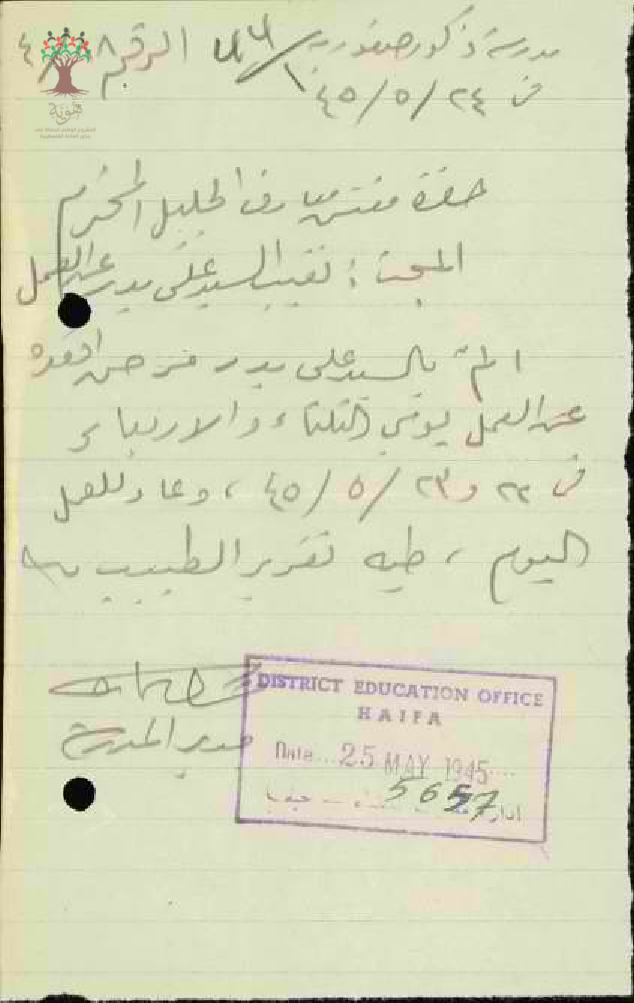 مدرسة ذكور صفورية الرقم
في ٢٤/٥/٤٥
حضرة مفتش معارف الجليل المحترم
المبحث : تغيب السيد علي بدر عن العمل
الم بالسيد علي بدر مرض اقعده
عن العمل يومي الثلثاء والاربعاء
في ٢٢ و ٢٣/٥/٤٥، وعاد للعمل
اليوم، طيه تقرير الطبيب
مدير المدرسة
DISTRICT EDUCATION OFFICE
HAIFA
Date....25 MAY 1945....
5657